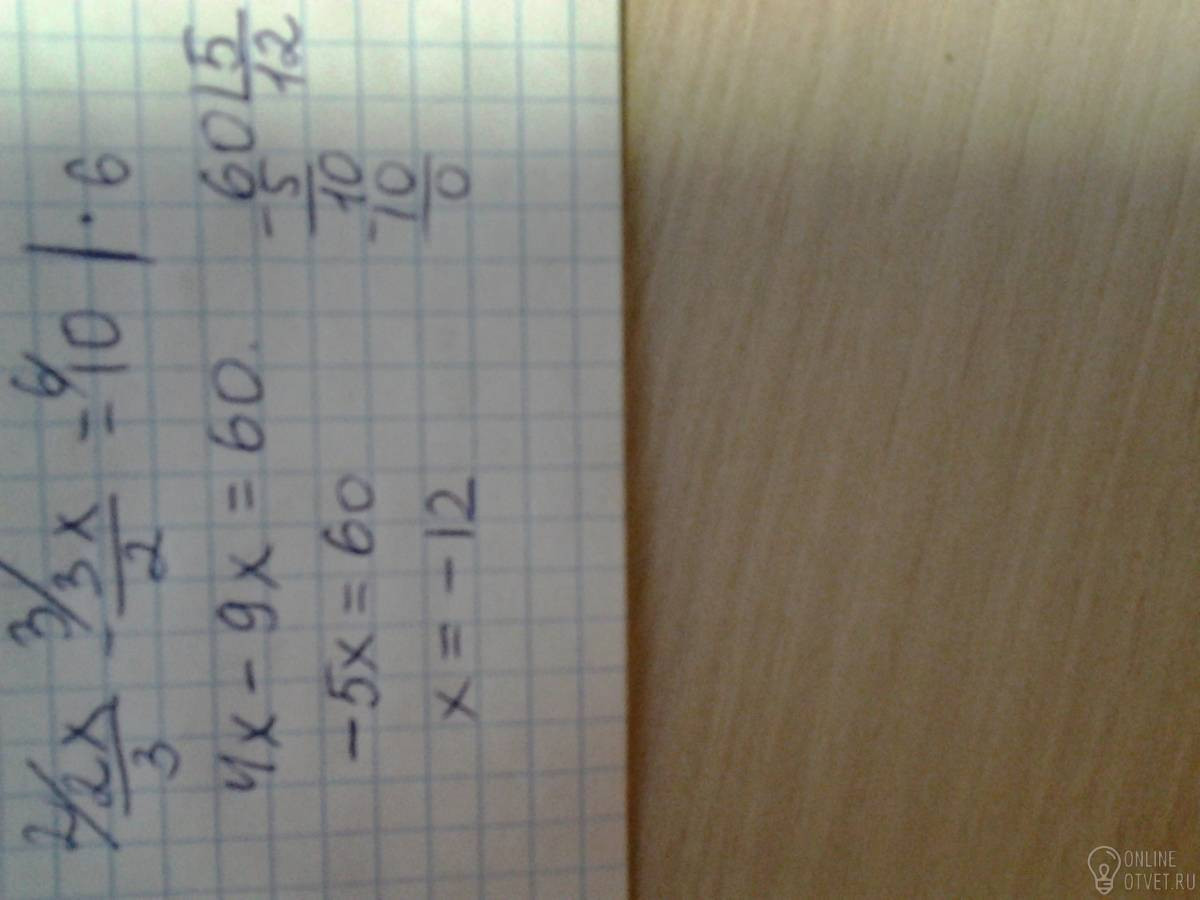 2/ 2x/3 - 3/ 3x/2 = 6/ 10 | · 6
4x - 9x = 60.
-5x = 60
x = -12
-60 | 5
5 12
10
-10
0
ONLINE
OTVET.RU